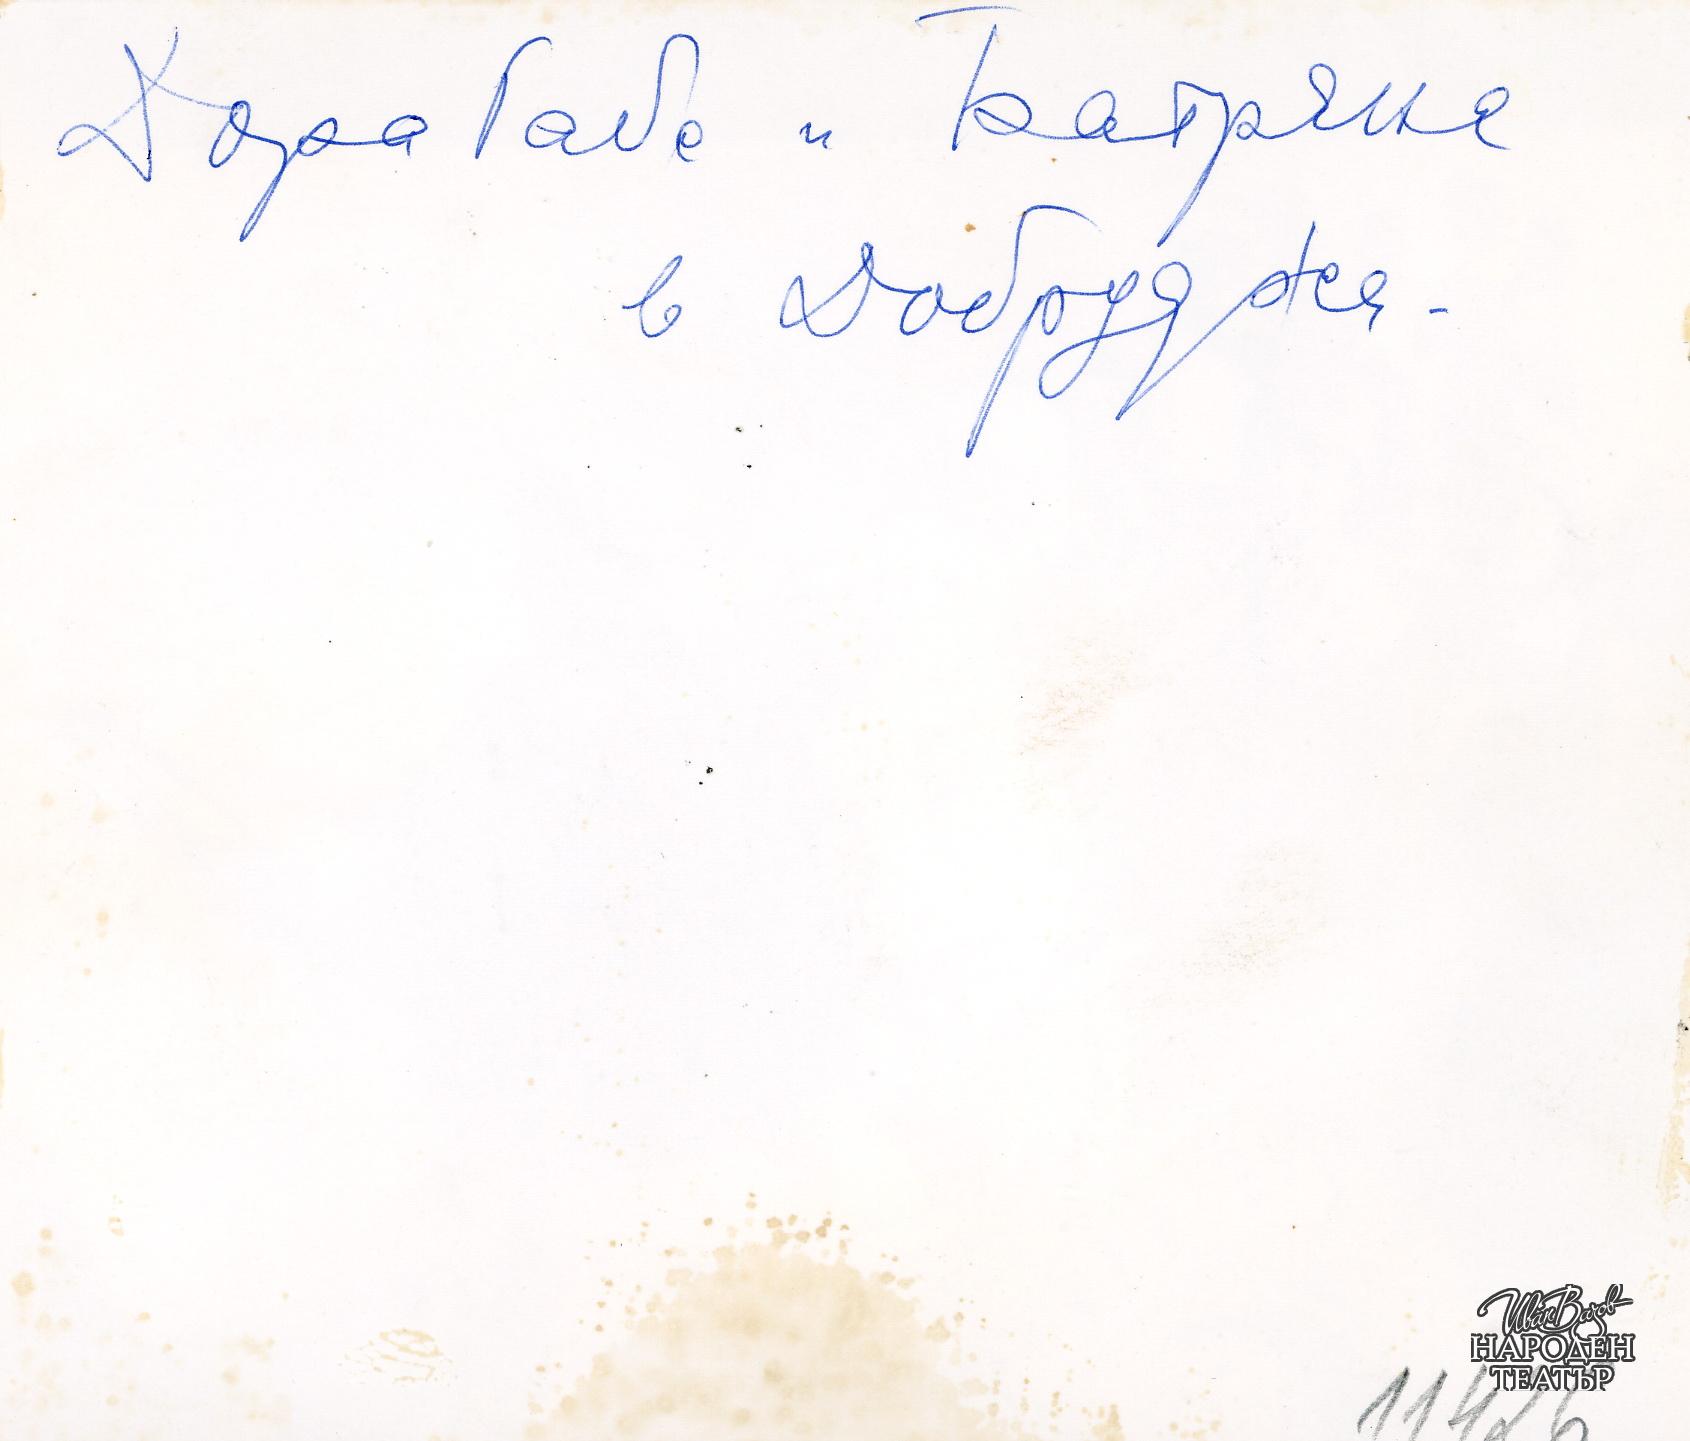 Дора Габе и Батряна
в Добруджа -
Иван Вазов
НАРОДЕН
ТЕАТЪР